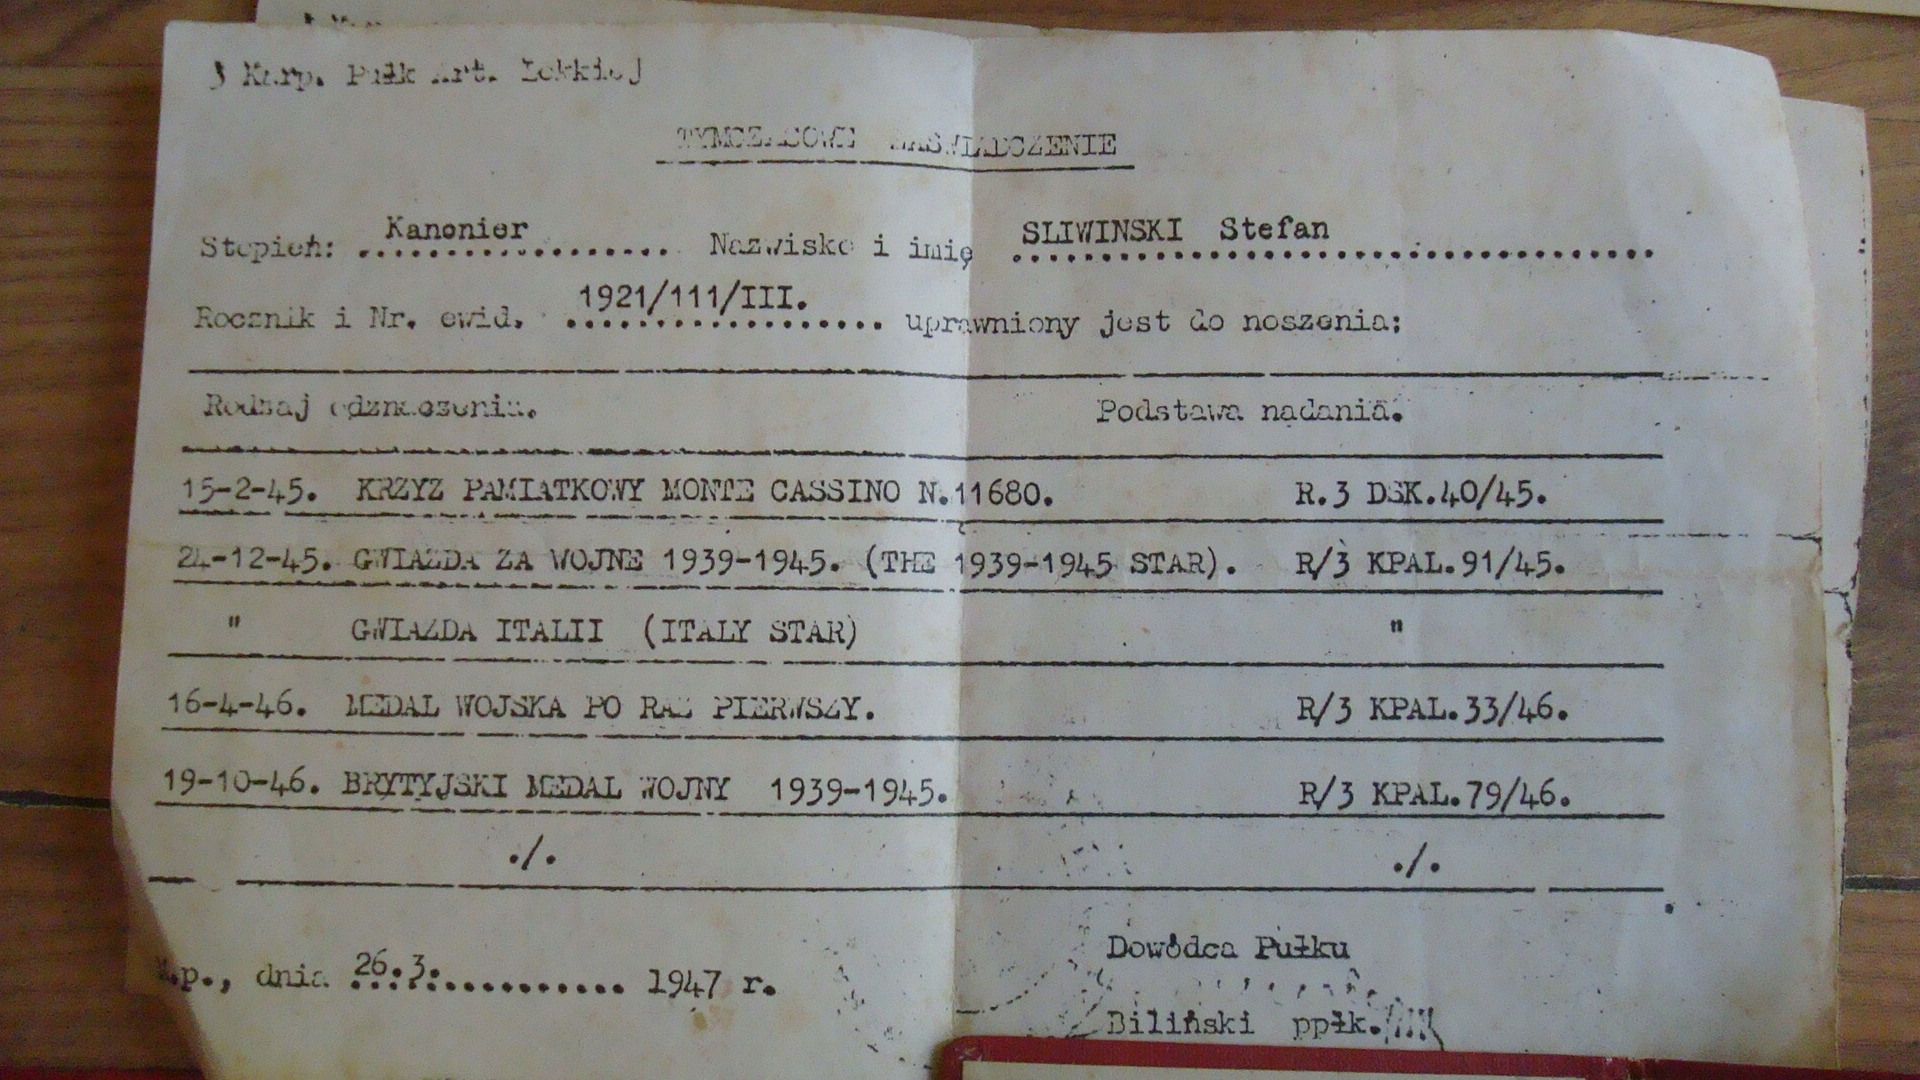 3 Karp. Pułk Art. Lekkiej
TYMCZASOWE ZAŚWIADCZENIE
Stopień: Kanonier Nazwisko i imię SLIWINSKI Stefan
Rocznik i Nr. ewid. 1921/111/III. uprawniony jest do noszenia:
Rodzaj odznaczenia. Podstawa nadania.
15-2-45. KRZYZ PAMIATKOWY MONTE CASSINO N.11680. R.3 DSK.40/45.
24-12-45. GWIAZDA ZA WOJNE 1939-1945. (THE 1939-1945 STAR). R/3 KPAL.91/45.
" GWIAZDA ITALII (ITALY STAR) "
16-4-46. MEDAL WOJSKA PO RAZ PIERWSZY. R/3 KPAL.33/46.
19-10-46. BRYTYJSKI MEDAL WOJNY 1939-1945. R/3 KPAL.79/46.
./. ./.
M.p., dnia 26.3. 1947 r.
Dowódca Pułku
Biliński ppłk.